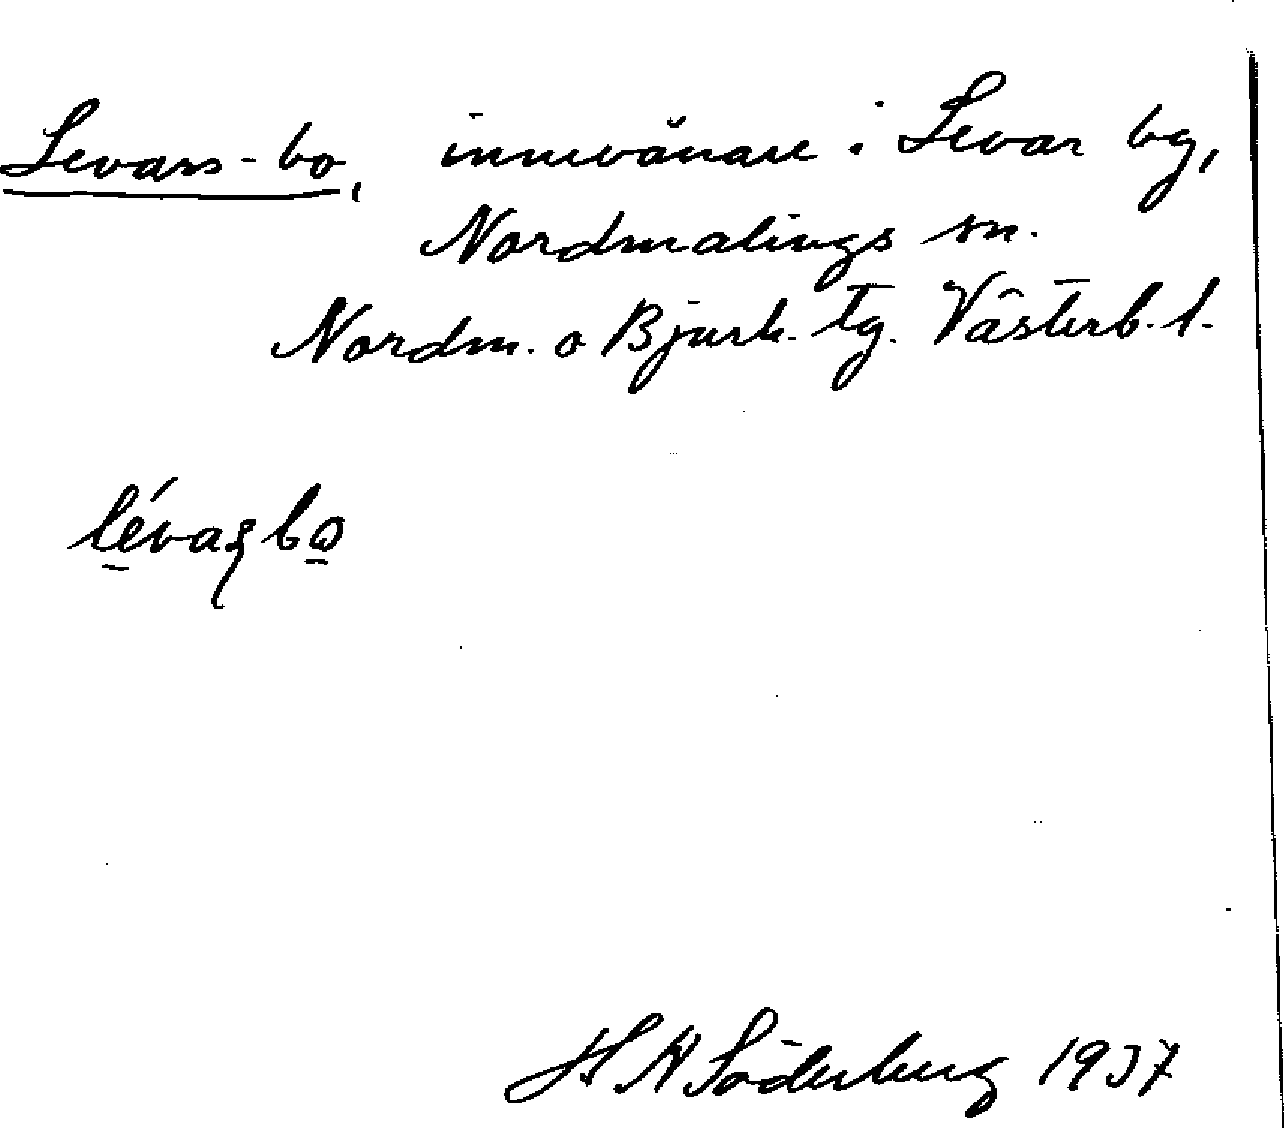 Levars-bo, innevånare i Levar by,
Nordmalings sn.
Nordm. o Bjurh. tg. Västerb. l.
lévaʂbo̲
H N Söderberg 1937